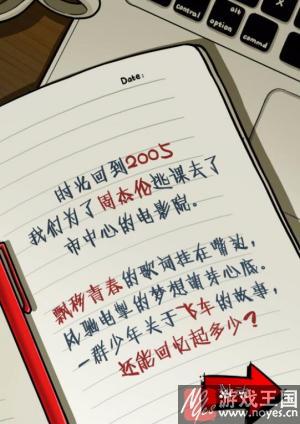 control
alt
option
cmd
command
Date:
时光回到2005
我们为了周杰伦逃课去了
市中心的电影院。
飘移青春的歌词挂在嘴边,
风驰电掣的梦想萌芽心底。
一群少年关于飞车的故事,
还能回忆起多少?
游戏王国
www.noyes.cn